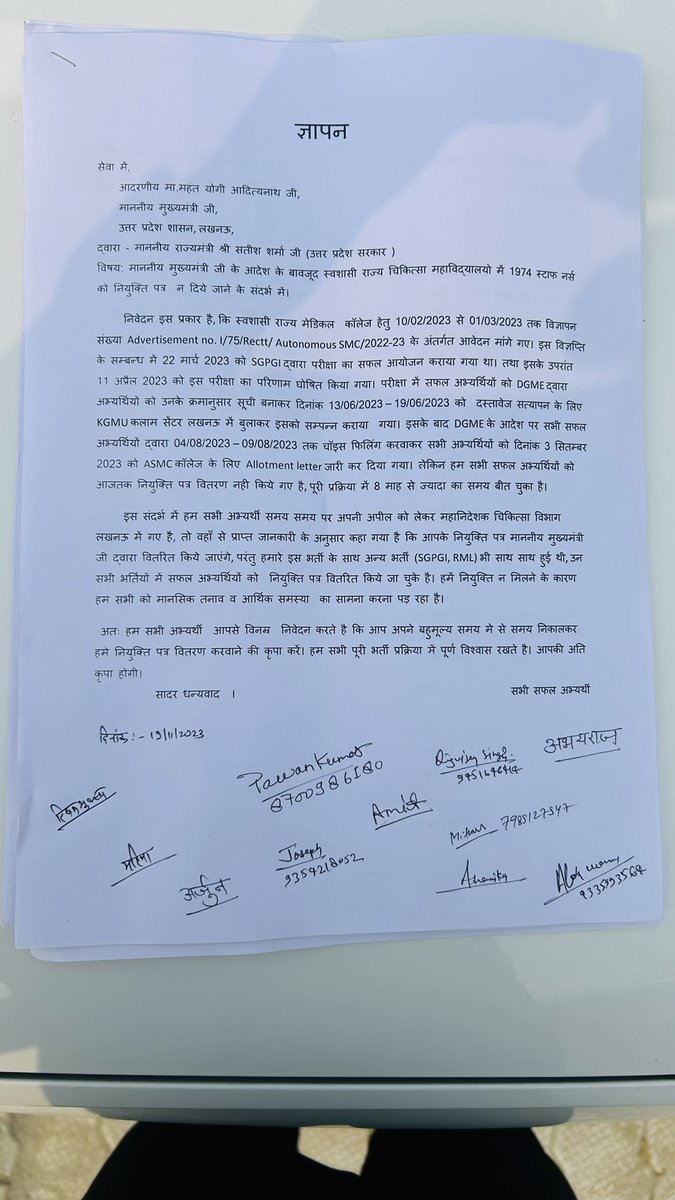 ज्ञापन
सेवा में,
आदरणीय मा.महंत योगी आदित्यनाथ जी,
माननीय मुख्यमंत्री जी,
उत्तर प्रदेश शासन, लखनऊ,
द्वारा - माननीय राज्यमंत्री श्री सतीश शर्मा जी (उत्तर प्रदेश सरकार )
विषय: माननीय मुख्यमंत्री जी के आदेश के बावजूद स्वशासी राज्य चिकित्सा महाविद्यालयो में 1974 स्टाफ नर्स
को नियुक्ति पत्र न दिये जाने के संदर्भ में।
निवेदन इस प्रकार है, कि स्वशासी राज्य मेडिकल कॉलेज हेतु 10/02/2023 से 01/03/2023 तक विज्ञापन
संख्या Advertisement no. I/75/Rectt/ Autonomous SMC/2022-23 के अंतर्गत आवेदन मांगे गए। इस विज्ञप्ति
के सम्बन्ध में 22 मार्च 2023 को SGPGI द्वारा परीक्षा का सफल आयोजन कराया गया था। तथा इसके उपरांत
11 अप्रैल 2023 को इस परीक्षा का परिणाम घोषित किया गया। परीक्षा में सफल अभ्यर्थियों को DGME द्वारा
अभ्यर्थियों को उनके क्रमानुसार सूची बनाकर दिनांक 13/06/2023 – 19/06/2023 को दस्तावेज सत्यापन के लिए
KGMU कलाम सेंटर लखनऊ में बुलाकर इसको सम्पन्न कराया गया। इसके बाद DGME के आदेश पर सभी सफल
अभ्यर्थियो द्वारा 04/08/2023 – 09/08/2023 तक चॉइस फिलिंग करवाकर सभी अभ्यर्थियों को दिनांक 3 सितम्बर
2023 को ASMC कॉलेज के लिए Allotment letter जारी कर दिया गया। लेकिन हम सभी सफल अभ्यर्थियों को
आजतक नियुक्ति पत्र वितरण नही किये गए है, पूरी प्रक्रिया में 8 माह से ज्यादा का समय बीत चुका है।
इस संदर्भ में हम सभी अभ्यर्थी समय समय पर अपनी अपील को लेकर महानिदेशक चिकित्सा विभाग
लखनऊ में गए है, तो वहाँ से प्राप्त जानकारी के अनुसार कहा गया है कि आपके नियुक्ति पत्र माननीय मुख्यमंत्री
जी द्वारा वितरित किये जाएंगे, परंतु हमारे इस भर्ती के साथ अन्य भर्ती (SGPGI, RML) भी साथ साथ हुई थी, उन
सभी भर्तियों में सफल अभ्यर्थियों को नियुक्ति पत्र वितरित किये जा चुके है। हमें नियुक्ति न मिलने के कारण
हम सभी को मानसिक तनाव व आर्थिक समस्या का सामना करना पड़ रहा है।
अतः हम सभी अभ्यर्थी आपसे विनम्र निवेदन करते है कि आप अपने बहुमूल्य समय मे से समय निकालकर
हमे नियुक्ति पत्र वितरण करवाने की कृपा करें। हम सभी पूरी भर्ती प्रक्रिया में पूर्ण विश्वास रखते है। आपकी अति
कृपा होगी।
सादर धन्यवाद । सभी सफल अभ्यर्थी
दिनांक :- 19/11/2023
अभयराज
Pawan Kumar
8700986180
Digvijay Singh
Amit
7985127547
Joseph
9354218052
अर्जुन
Anamika
9335993564